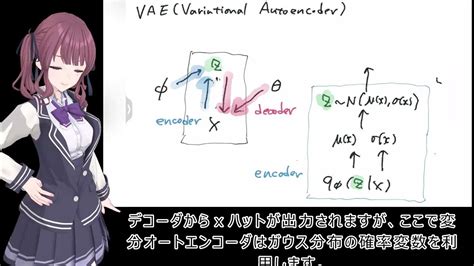 VAE (Variational Autoencoder)
z
φ
θ
encoder
decoder
x
z ~ N(μ(x), σ(x))
μ(x) σ(x)
encoder
qφ(z|x)
デコーダからxハットが出力されますが、ここで変
分オートエンコーダはガウス分布の確率変数を利
用します。